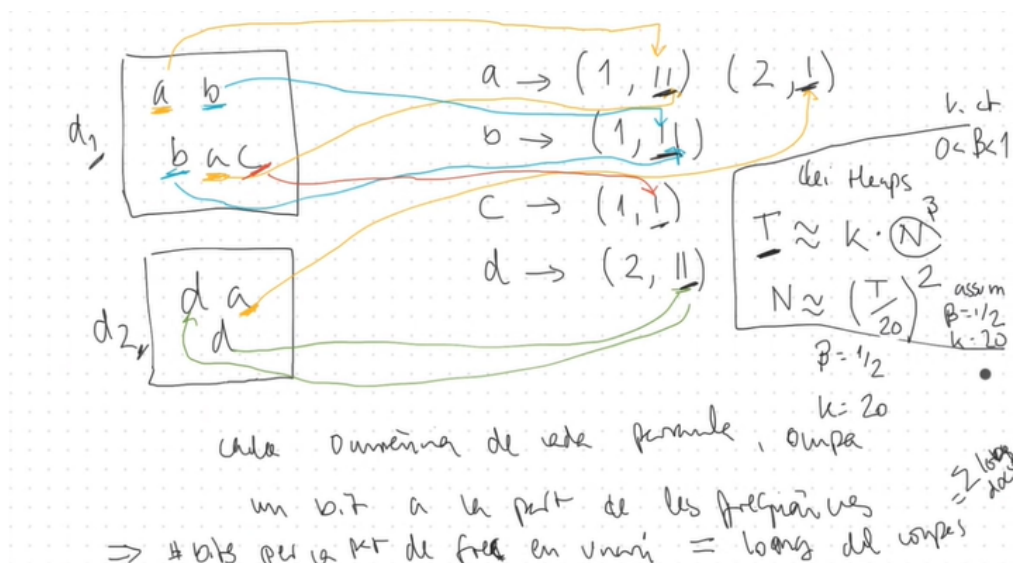 a → (1, 11) (2, 1)
a b
b → (1, 11)
d1
b a c
c → (1, 1)
d → (2, 11)
d a
d2
d
k ct
0 < β < 1
Llei Heaps
T ≈ K · N^β
N ≈ (T/20)^2
assum
β = 1/2
k = 20
β = 1/2
k = 20
cada ocurrència de cada paraula, ocupa
un bit a la part de les freqüències
⇒ # bits per la part de freq en unari = long del corpus
= Σ long